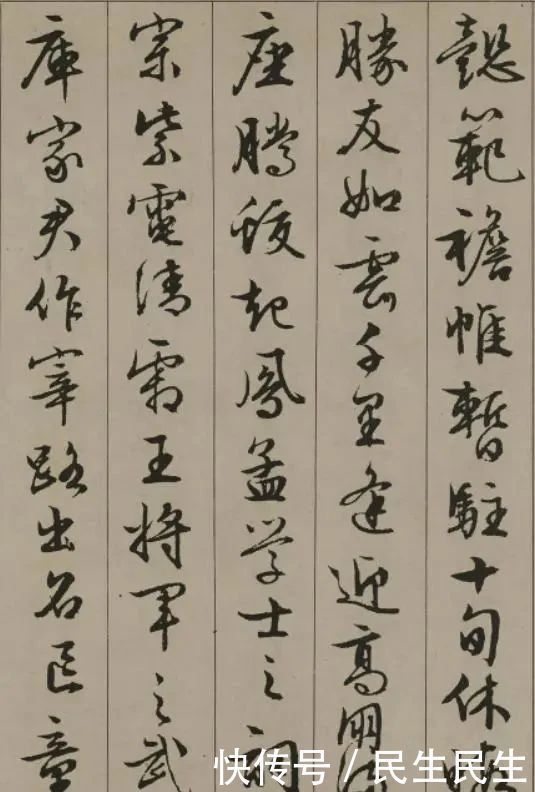 懿範襜帷暫駐十旬休
勝友如雲千里逢迎高朋
座騰蛟起鳳孟學士之詞
宗紫電清霜王將軍之武
庫家君作宰路出名區童
快传号 / 民生民生